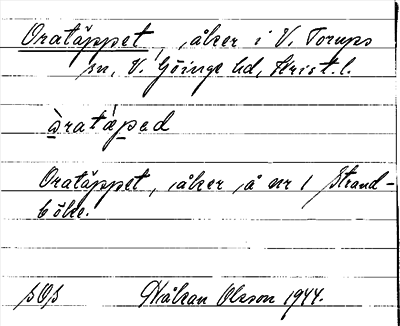 Oratäppet, åker i V. Torups
sn, V. Göinge hd, Krist. l.
òratä́ped
Oratäppet, åker å nr 1 Strand-
böke.
Håkan Olsson 1944.